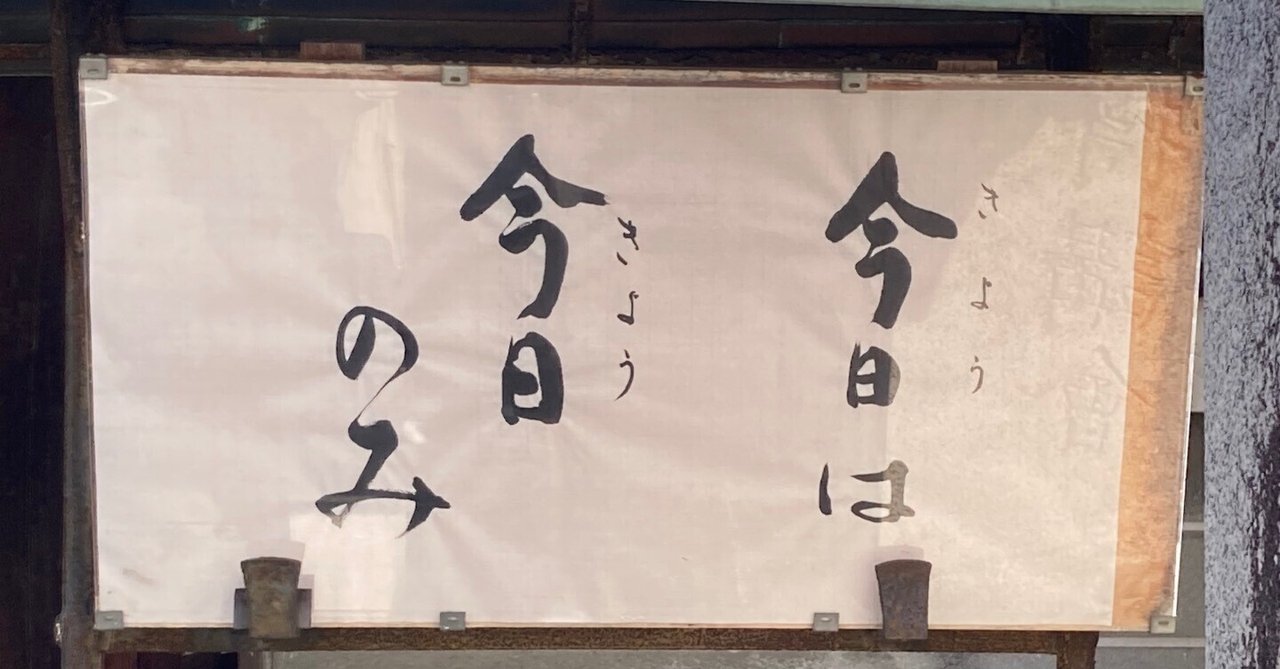 今日は
きょう
今日
きょう
のみ